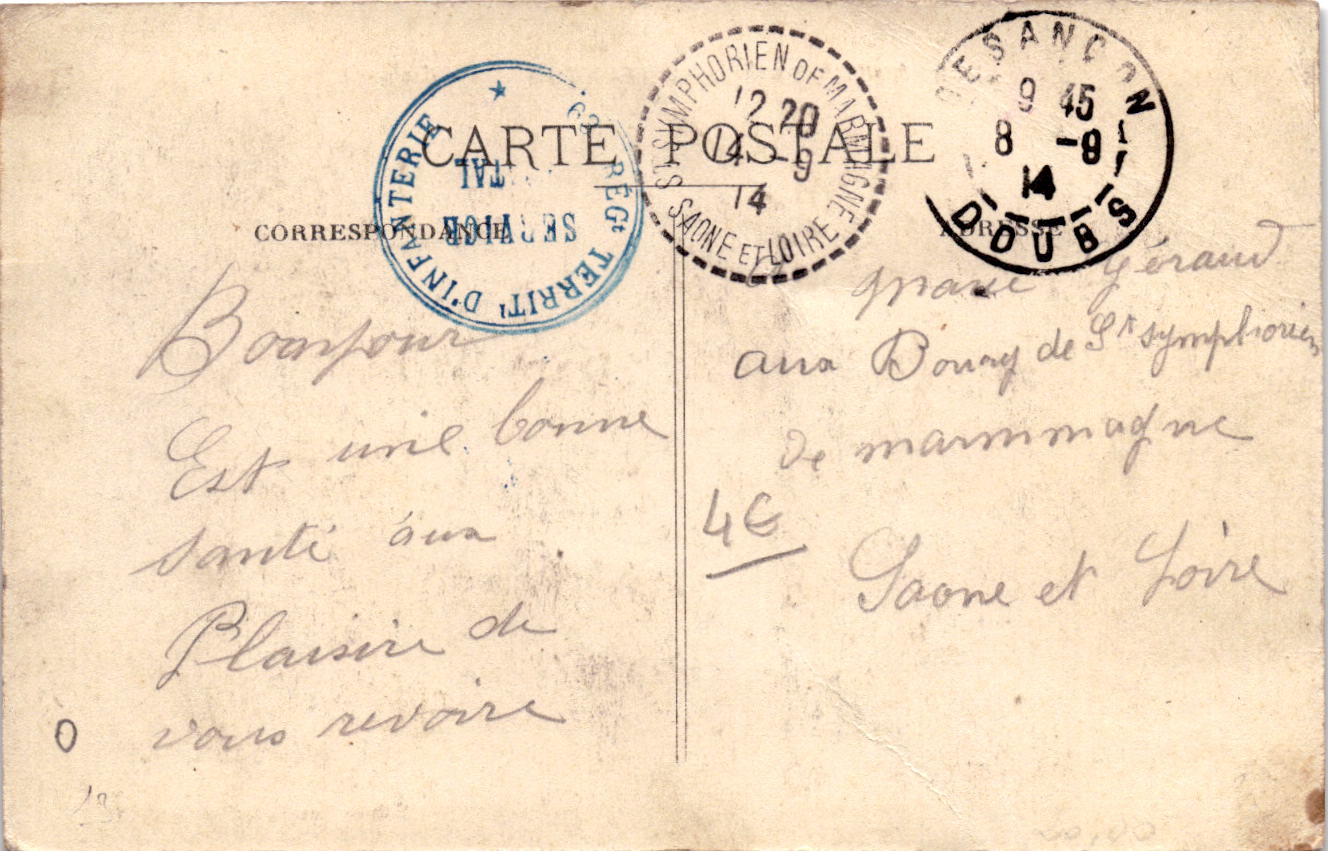 CARTE POSTALE
CORRESPONDANCE
ADRESSE
RÉGt TERRITl D'INFANTERIE
SERVICE
ST SYMPHORIEN DE MARMAGNE
12 20
14 - 9
14
SAONE ET LOIRE
BESANÇON
9 45
8 -9
14
DOUBS
Bonjour
Est une bonne
santé aux
Plaisire de
vous revoire
Géraud
aux Bourg de St Symphorien
de marmmagne
Saone et Loire
4€